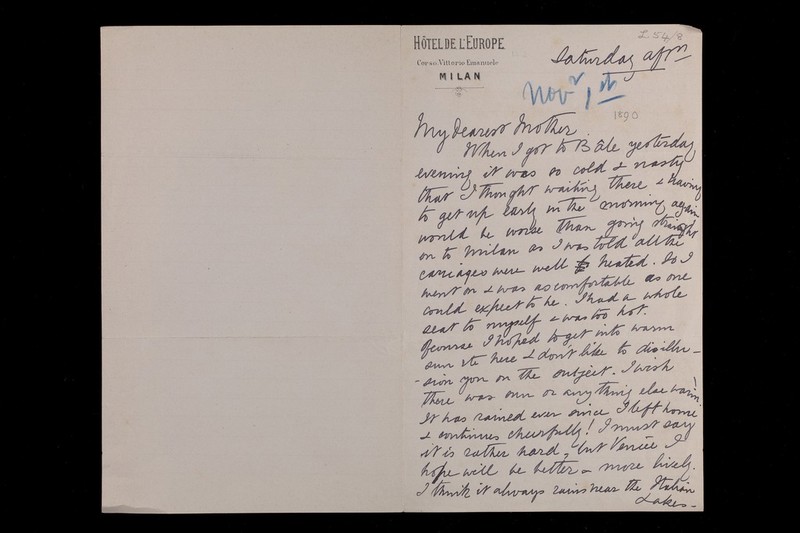 HÔTEL DE L'EUROPE
Corso Vittorio Emanuele
MILAN
L 54/8
Saturday aftn
Novr 1st
1890
My dearest Mother
When I got to Bâle yesterday
evening it was so cold & nasty
that I thought waiting there & having
to get up early in the morning again
would be worse than going straight
on to Milan as I was told all the
carriages were well heated. So I
went on & was as comfortable as one
could expect to be. I had a whole
seat to myself & was too hot.
Of course I hoped to get into warm
sun &c here & I don't like to disillu-
-sion you on the subject. I wish
there was sun or anything else warm!
It has rained ever since I left home
& continues cheerfully! I must say
it is rather hard, but Venice I
hope will be better & more lively.
I think it always rains near the Italian
Lakes -